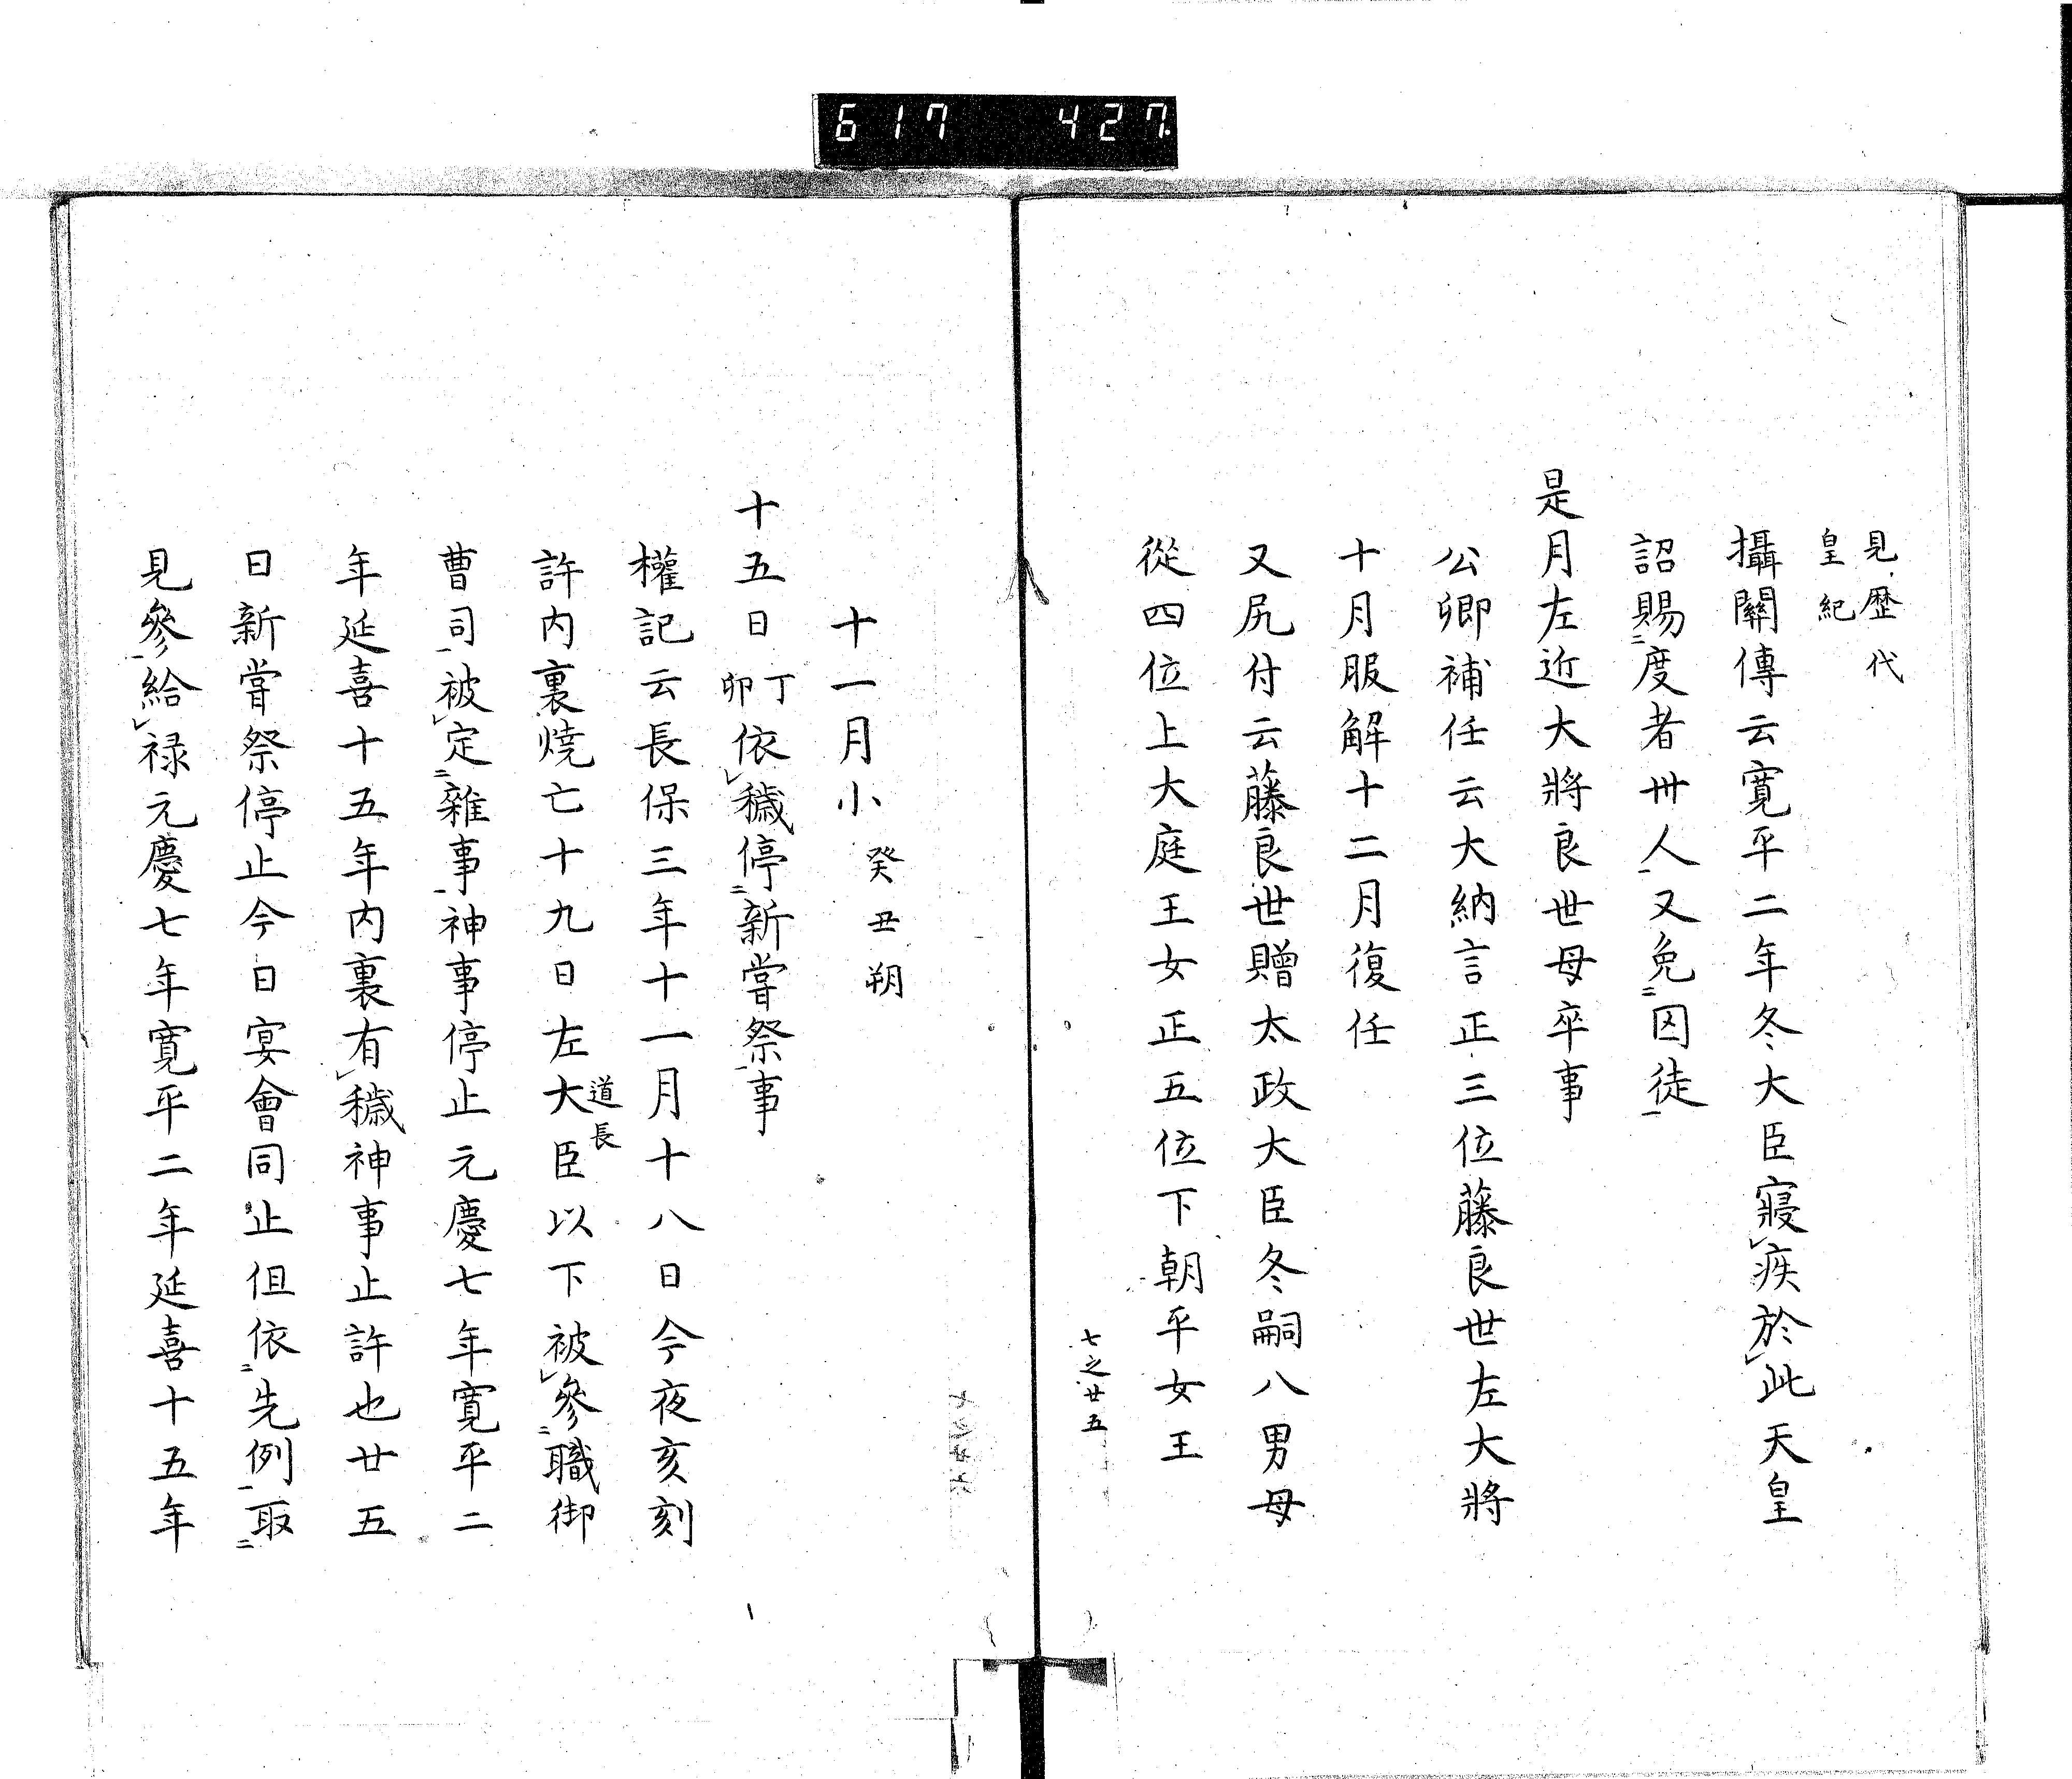 617 427
見歴代
皇紀
攝關傳云寛平二年冬大臣寢疾於此天皇
詔賜度者卅人又免囚徒
是月左近大將良世母卒事
公卿補任云大納言正三位藤良世左大將
十月服解十二月復任
又尻付云藤良世贈太政大臣冬嗣八男母
從四位上大庭王女正五位下朝平女王
七之廿五
十一月小癸丑朔
十五日丁卯依穢停新嘗祭事
權記云長保三年十一月十八日今夜亥刻
許内裏燒亡十九日左大臣道長以下被參職御
曹司被定雜事神事停止元慶七年寛平二
年延喜十五年内裏有穢神事止許也廿五
日新嘗祭停止今日宴會同止但依先例取
見參給祿元慶七年寛平二年延喜十五年